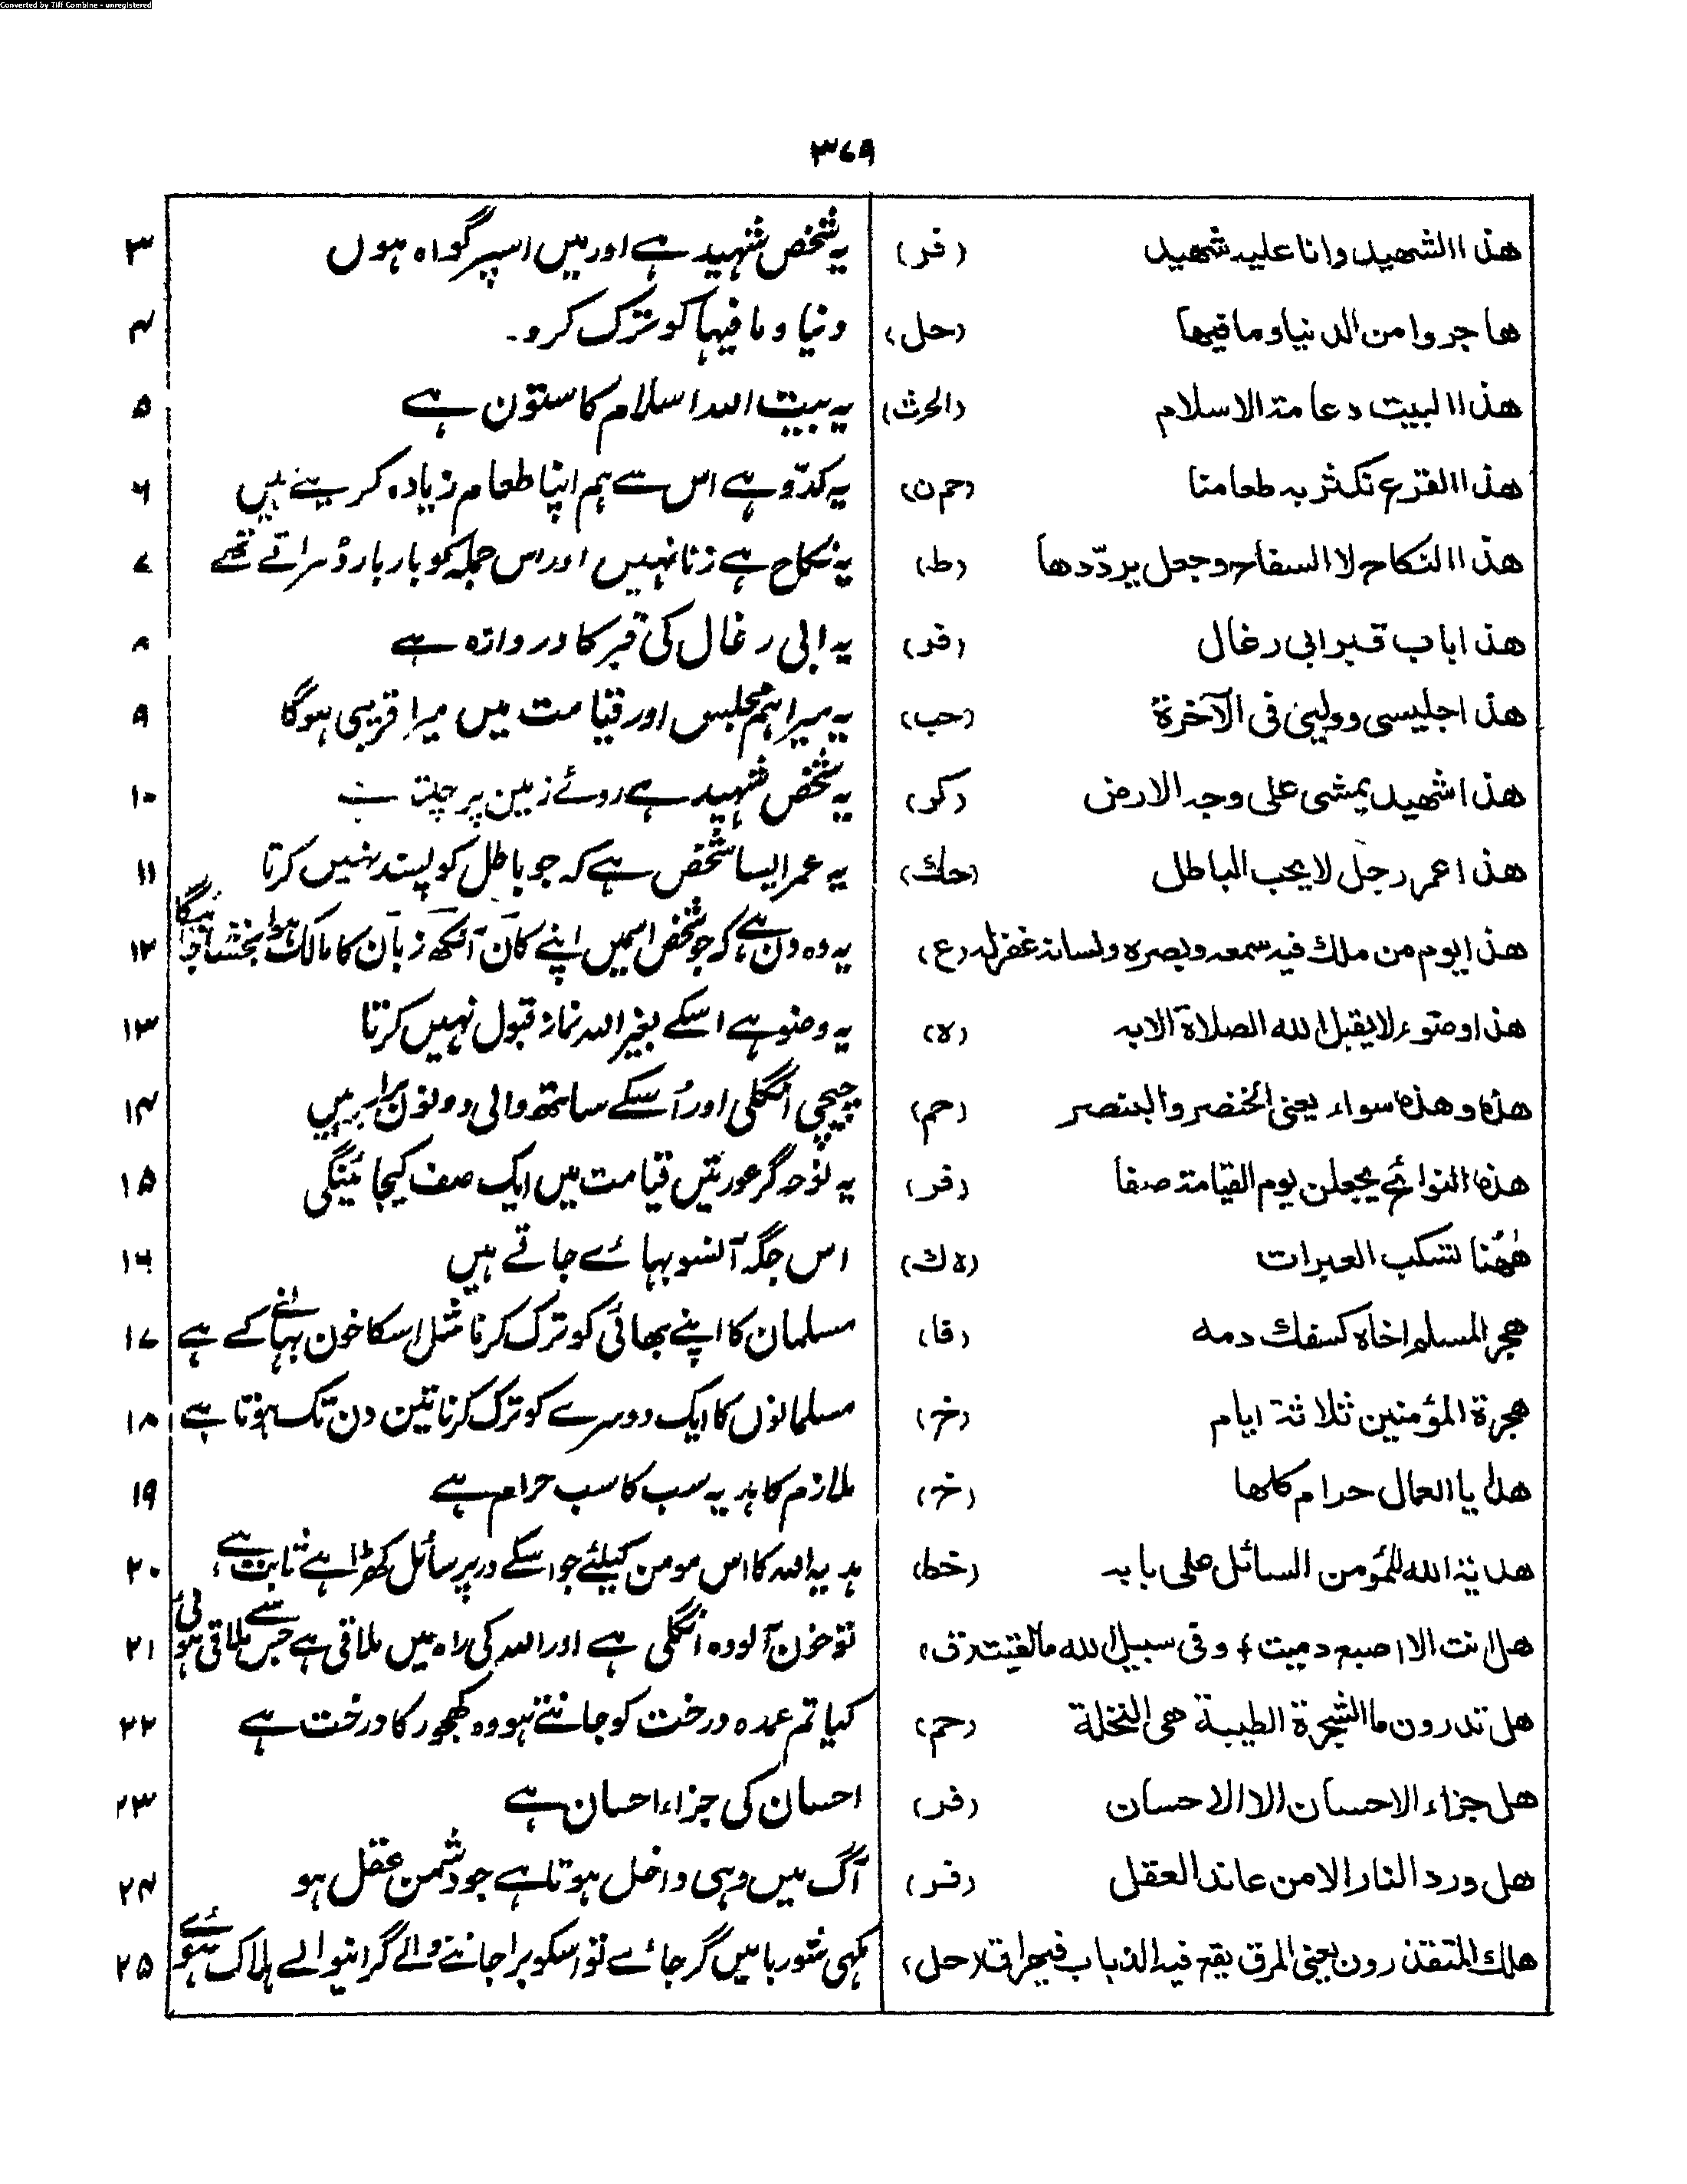 Converted by Tiff Combine - unregistered
٣٦٩
هذا الشهيد وانا عليه شهيد (فر) یہ شخص شہید ہے اور میں اسپر گواہ ہوں ٣
هاجروا من الدنيا وما فيها (حل) دنیا و ما فیہا کو ترک کرو۔ ۴
هذا البيت دعامة الاسلام (الحرث) یہ بیت اللہ اسلام کا ستون ہے ۵
هذا القرع نكثر به طعامنا (حم ن) یہ کدّو ہے اس سے ہم اپنا طعام زیادہ کرتے ہیں ۶
هذا النكاح لا السفاح وجعل يردّدها (ط) یہ نکاح ہے زنا نہیں اور اس جملہ کو بار بار دُہراتے تھے ۷
هذا باب قبر ابى رغال (فر) یہ ابی رغال کی قبر کا دروازہ ہے ۸
هذا جليسى ووليى فى الآخرة (حب) یہ میرا ہم مجلس اور قیامت میں میرا قریبی ہوگا ۹
هذا شهيد يمشى على وجه الارض (كر) یہ شخص شہید ہے روئے زمین پر چلتا ہے ۱۰
هذا عمر رجل لا يحب الباطل (حك) یہ عمر ایسا شخص ہے کہ جو باطل کو پسند نہیں کرتا ۱۱
هذا يوم من ملك فيه سمعه وبصره ولسانه غفرله (ع) یہ وہ دن ہے کہ جو شخص اسمیں اپنے کان آنکھ زبان کا مالک ہوا بخشا جائیگا ۱۲
هذا وضوء لا يقبل الله الصلاة الا به (ه) یہ وضو ہے اسکے بغیر اللہ نماز قبول نہیں کرتا ۱۳
هذه وهذه سواء يعنى الخنصر والبنصر (حم) چیچی انگلی اور اُسکے ساتھ والی دونوں برابر ہیں ۱۴
هذه النوائح يجعلن يوم القيامة صفا (فر) یہ نوحہ گر عورتیں قیامت میں ایک صف کیجائینگی ۱۵
ههُنا تسكب العبرات (ه ك) اس جگہ آنسو بہائے جاتے ہیں ۱۶
هجر المسلم اخاه كسفك دمه (قا) مسلمان کا اپنے بھائی کو ترک کرنا مثل اسکا خون بہانے کے ہے ۱۷
هجرة المؤمنين ثلاثة ايام (خ) مسلمانوں کا ایک دوسرے کو ترک کرنا تین دن تک ہوتا ہے ۱۸
هدايا العمال حرام كلها (خ) ملازم کا ہدیہ سب کا سب حرام ہے ۱۹
هدية الله للمؤمن السائل على بابه (خط) ہدیہ اللہ کا اس مومن کیلئے جو اسکے در پر سائل کھڑا ہے ثابت ہے، ۲۰
هل انت الا اصبع دميت + وفى سبيل الله ما لقيت (ق) تو خون آلودہ انگلی ہے اور اللہ کی راہ میں ملاقی ہے جس سے ملاقی ہوئی ۲۱
هل تدرون ما الشجرة الطيبة هى النخلة (حم) کیا تم عمدہ درخت کو جانتے ہو وہ کھجور کا درخت ہے ۲۲
هل جزاء الاحسان الا الاحسان (فر) احسان کی جزاء احسان ہے ۲۳
هل ورد النار الا من عاند العقل (فر) آگ میں وہی داخل ہوتا ہے جو دشمن عقل ہو ۲۴
هلك المتقذرون يعنى المرق يقع فيه الذباب فيهراق (حل) مکھی شوربا میں گر جائے تو اسکو برا جاننے والے گرانیوالے ہلاک ہوئے ۲۵